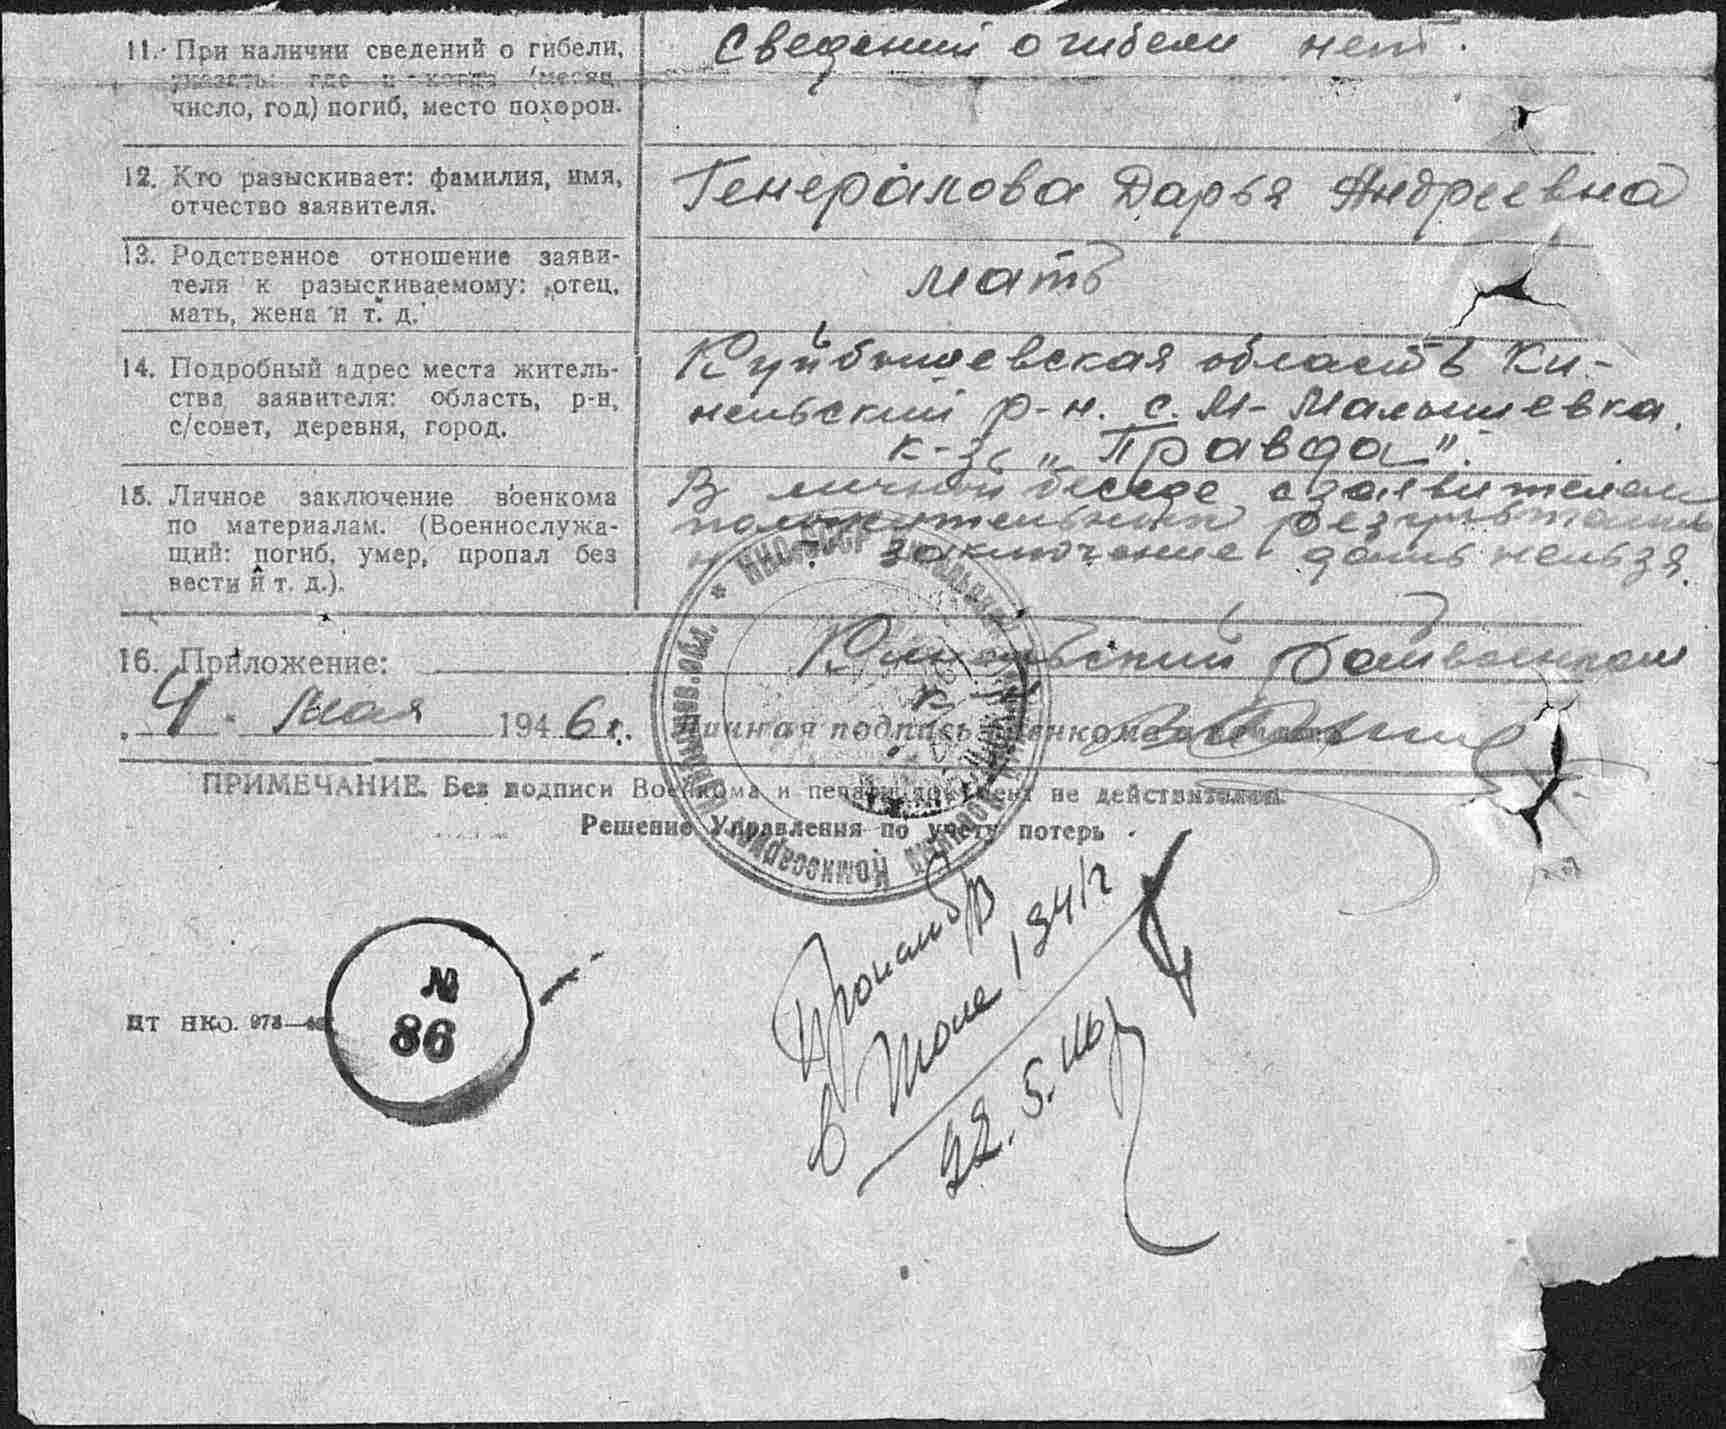 11. При наличии сведений о гибели,
указать: где и когда (месяц,
число, год) погиб, место похорон.
Сведений о гибели нет.
12. Кто разыскивает: фамилия, имя,
отчество заявителя.
Генералова Дарья Андреевна
13. Родственное отношение заяви-
теля к разыскиваемому: отец,
мать, жена и т. д.
мать
14. Подробный адрес места житель-
ства заявителя: область, р-н,
с/совет, деревня, город.
Куйбышевская область Ки-
нельский р-н. с. М-Малышевка.
к-з „Правда".
15. Личное заключение военкома
по материалам. (Военнослужа-
щий: погиб, умер, пропал без
вести и т. д.).
В личной беседе с заявителем
положительных результатов
заключение дать нельзя.
16. Приложение:
Кинельский Райвоенком
4. Мая 1946 г. Личная подпись военкома
ПРИМЕЧАНИЕ. Без подписи Военкома и печати документ не действителен.
Решение Управления по учету потерь
НКО-СССР
Комиссариат
Пропал б/в
в Июне 1941 г
22.5.46
№
86
ЦТ НКО. 973